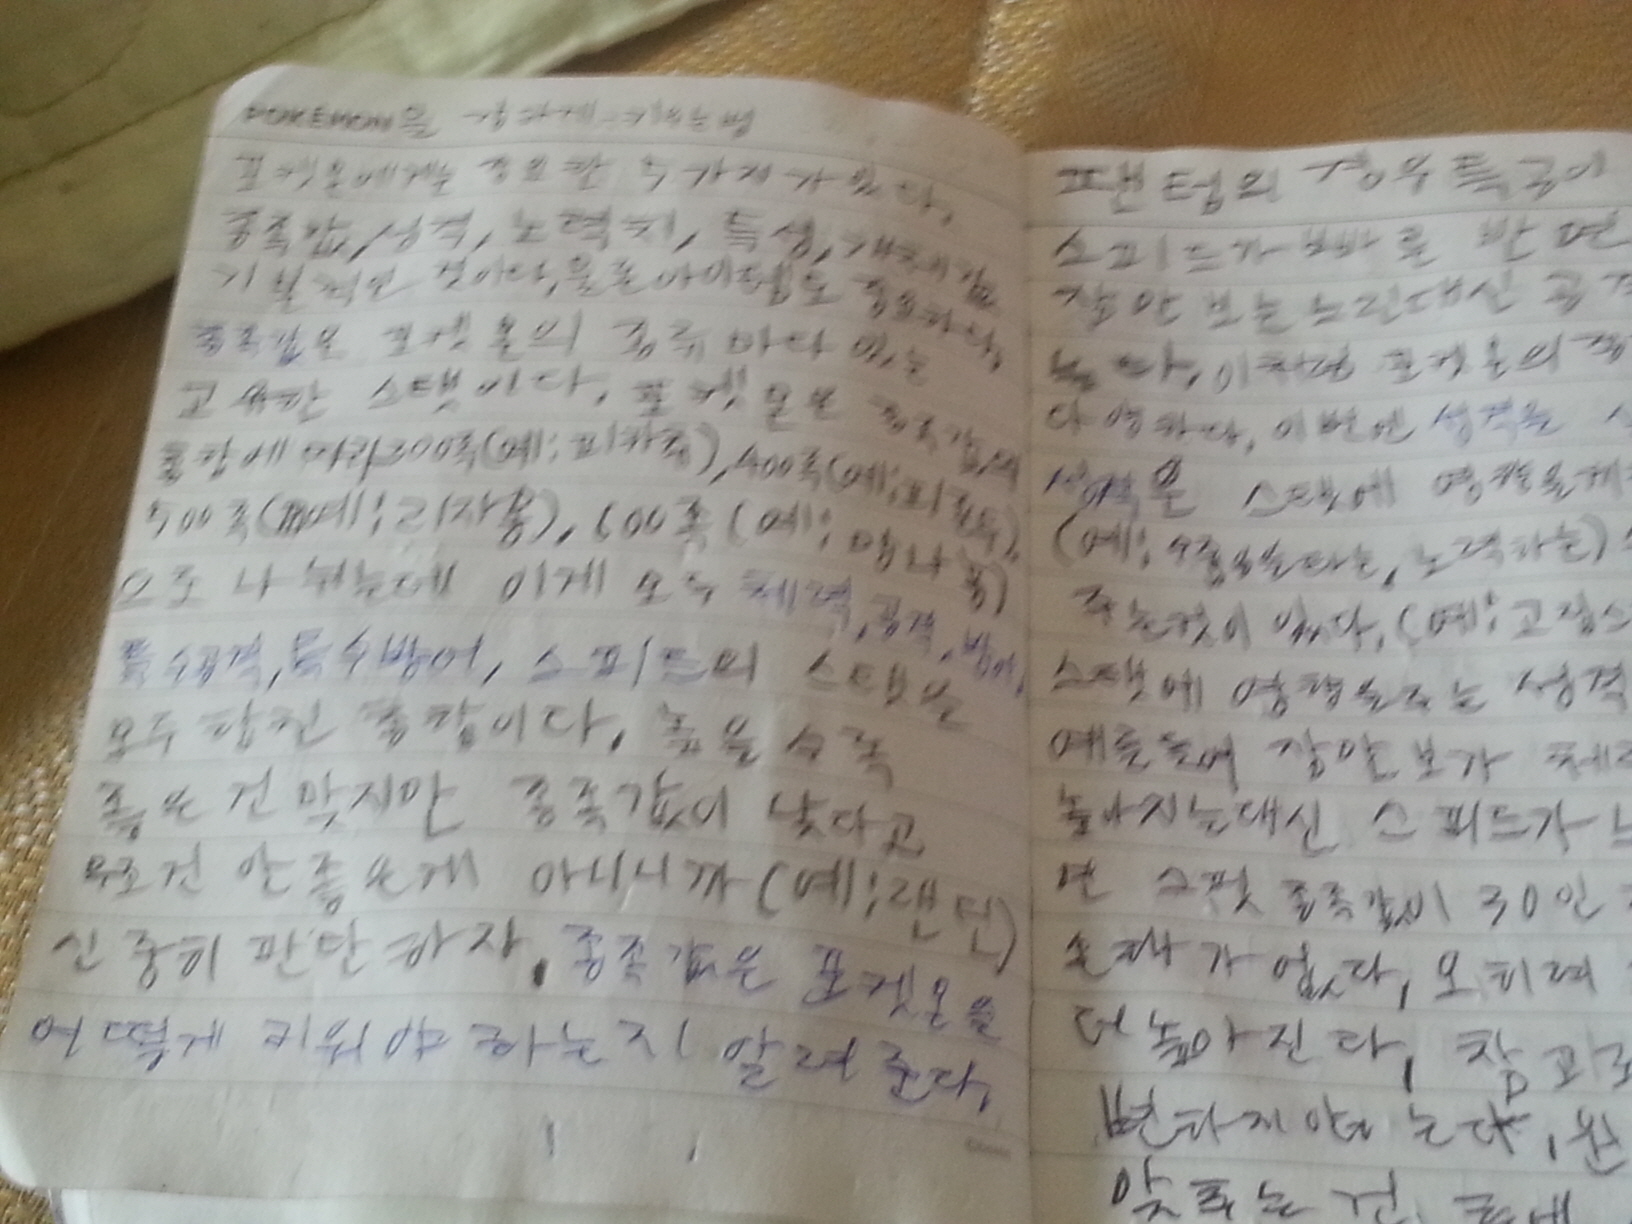 POKEMON을 강하게 키우는 법
포켓몬에게는 중요한 수가지가 있다,
종족값, 성격, 노력치, 특성, 개체값
기본적인 것이다, 물론 아이템도 중요하다,
종족값은 포켓몬의 종류마다 있는
고유한 스탯이다, 포켓몬은 종족값의
총합에 따라 300족(예;피카츄), 400족(예;피죤투),
500족(예;리자몽), 600족(예;망나뇽)
으로 나뉘는데 이게 모두 체력, 공격, 방어,
특수공격, 특수방어, 스피드의 스탯을
모두 합친 총합이다, 높을수록
좋은 건 맞지만 종족값이 낮다고
무조건 안좋은게 아니니까(예;랜턴)
신중히 판단하자, 종족값은 포켓몬을
어떻게 키워야 하는지 알려준다,
팬텀의 경우 특공이
스피드가 빠른 반면
잠만보는 느린대신 공격
높다, 이처럼 포켓몬의
다양하다, 이번엔 성격을
성격은 스탯에 영향을
(예;수줍음타는, 노력하는)
주는것이 있다, (예;고집스
스탯에 영향을주는 성격
예를들어 잠만보가 체력
높아지는대신 스피드가
면 스핏 종족값이 30인
손해가 없다, 오히려
더 높아진다, 참고로
변하지 않는다,
맞추는 건